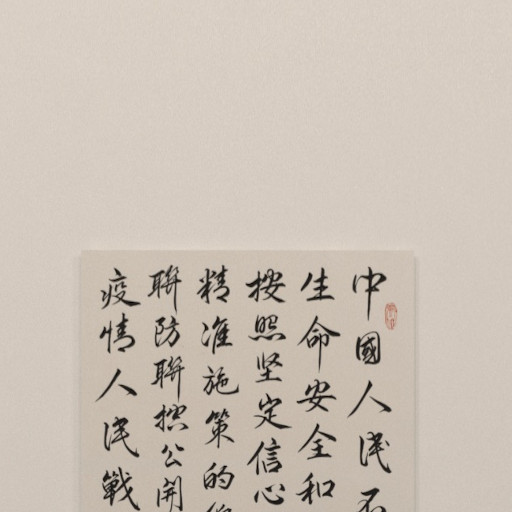 中國人民
生命安全和
按照坚定信心
精准施策的
聯防聯控公開
疫情人民戰